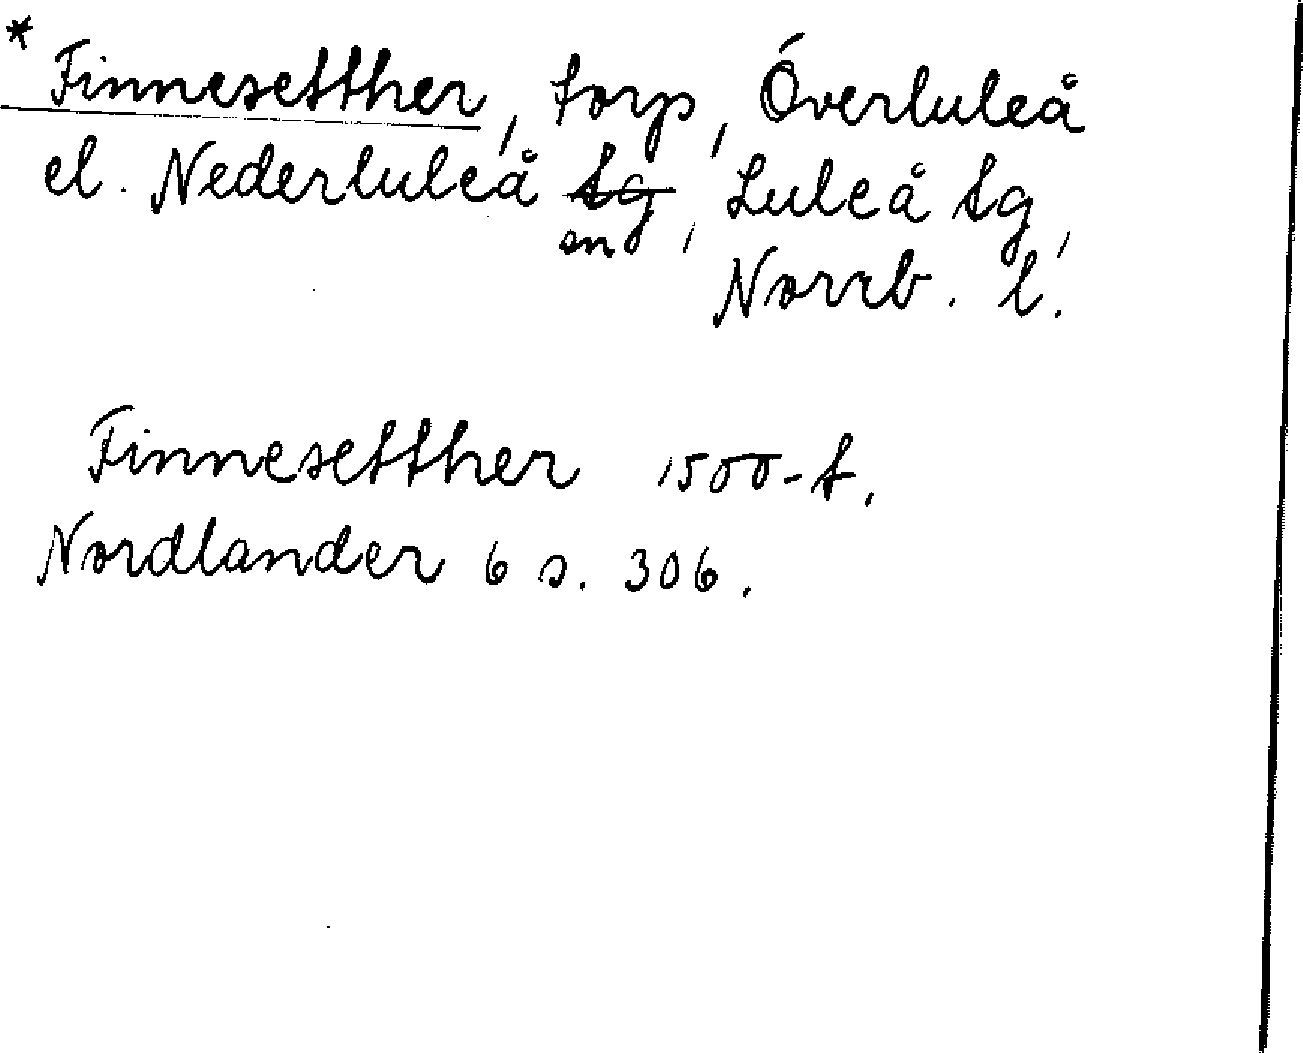 * Finnesetther, torp, Överluleå
el. Nederluleå tg sn, Luleå tg,
Norrb. l.
Finnesetther 1500-t.
Nordlander 6 s. 306.